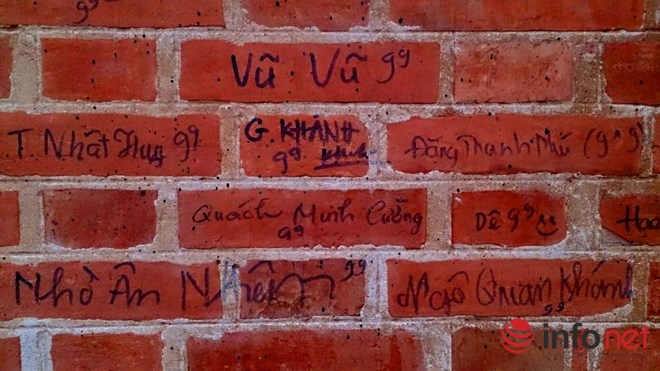 Vũ Vũ 99
T. Nhật Huy 99
G. KHÁNH
99
Đặng Thanh Phú (9^9)
Quách Minh Cường
99
Dê 99
Nhờ Ân Nhiên 99
Ngô Quan Khánh
99
infonet